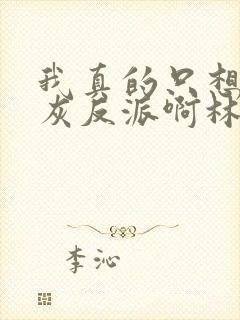 我真的只想
灰反派啊林
李沁